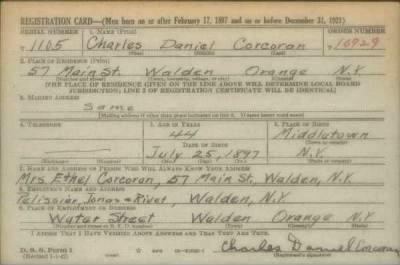 REGISTRATION CARD—(Men born on or after February 17, 1897 and on or before December 31, 1921)
SERIAL NUMBER 1. NAME (Print) ORDER NUMBER
T 1105 Charles Daniel Corcoran 10929
(First) (Middle) (Last)
2. PLACE OF RESIDENCE (Print)
57 Main St. Walden Orange N.Y.
(Number and street) (Town, township, village, or city) (County) (State)
[THE PLACE OF RESIDENCE GIVEN ON THE LINE ABOVE WILL DETERMINE LOCAL BOARD
JURISDICTION; LINE 2 OF REGISTRATION CERTIFICATE WILL BE IDENTICAL]
3. MAILING ADDRESS
Same
[Mailing address if other than place indicated on line 2. If same insert word same]
4. TELEPHONE 5. AGE IN YEARS 6. PLACE OF BIRTH
44 Middletown
DATE OF BIRTH (Town or county)
July 25, 1897 N.Y.
(Exchange) (Number) (Mo.) (Day) (Yr.) (State or country)
7. NAME AND ADDRESS OF PERSON WHO WILL ALWAYS KNOW YOUR ADDRESS
Mrs. Ethel Corcoran, 57 Main St., Walden, N.Y.
8. EMPLOYER'S NAME AND ADDRESS
Walden, N.Y.
9. PLACE OF EMPLOYMENT OR BUSINESS
Water Street Walden Orange N.Y.
(Number and street or R. F. D. number) (Town) (County) (State)
I AFFIRM THAT I HAVE VERIFIED ABOVE ANSWERS AND THAT THEY ARE TRUE.
D. S. S. Form 1
(Revised 1-1-42) (over) Charles Daniel Corcoran
(Registrant's signature)